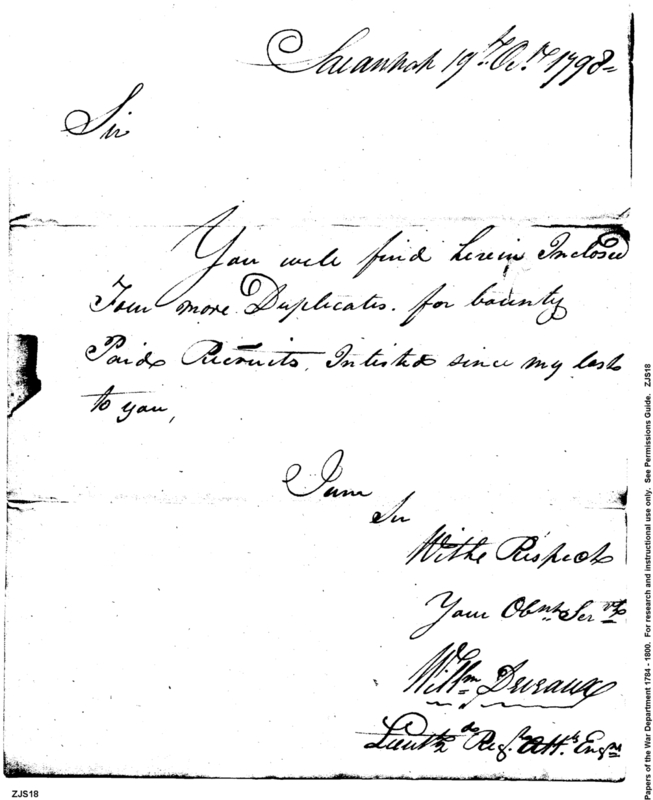 Savannah 19th. Oct. 1798=
Sir
You will find herein Inclosed
Four more Duplicates. for bounty
Paid Recruits. Intisted since my last
to you,
I am
Sir
Withe Respect
Your Obnt Servt
Willm
Lieut 2d Regt. Att.s Engrs
Papers of the War Department 1784 - 1800. For research and instructional use only. See Permissions Guide. ZJS18
ZJS18